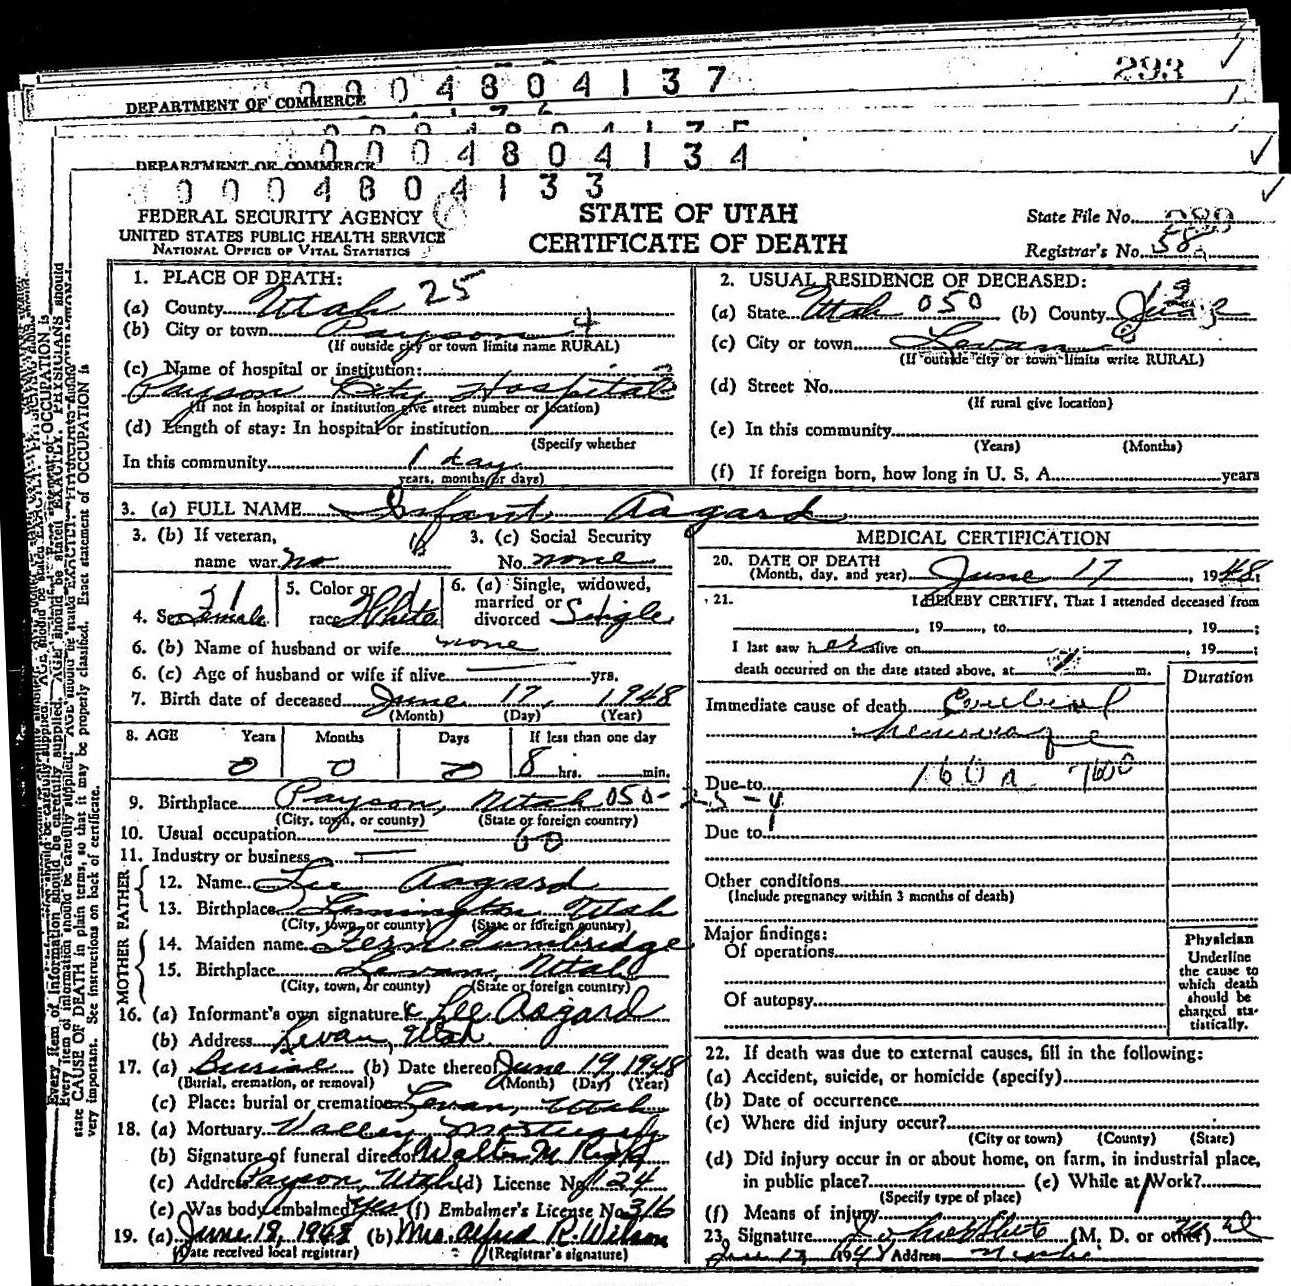 293
0004804137
DEPARTMENT OF COMMERCE
0004804134
DEPARTMENT OF COMMERCE
0004804133
FEDERAL SECURITY AGENCY
UNITED STATES PUBLIC HEALTH SERVICE
NATIONAL OFFICE OF VITAL STATISTICS
STATE OF UTAH
CERTIFICATE OF DEATH
State File No.
Registrar's No. 58
1. PLACE OF DEATH:
(a) County Utah 25
(b) City or town Payson 4
(If outside city or town limits name RURAL)
(c) Name of hospital or institution:
Payson City Hospital
(If not in hospital or institution give street number or location)
(d) Length of stay: In hospital or institution
(Specify whether
In this community 1 day
years, months or days)
2. USUAL RESIDENCE OF DECEASED:
(a) State Utah 050 (b) County Juab
(c) City or town Levan
(If outside city or town limits write RURAL)
(d) Street No.
(If rural give location)
(e) In this community
(Years) (Months)
(f) If foreign born, how long in U. S. A. years
3. (a) FULL NAME Infant Aagard
3. (b) If veteran,
name war no
3. (c) Social Security
No. none
4. Sex Female
5. Color or
race White
6. (a) Single, widowed,
married or
divorced Single
6. (b) Name of husband or wife none
6. (c) Age of husband or wife if alive yrs.
7. Birth date of deceased June 17, 1948
(Month) (Day) (Year)
8. AGE Years Months Days If less than one day
0 0 0 8 hrs. min.
9. Birthplace Payson, Utah 050-25-4
(City, town, or county) (State or foreign country)
10. Usual occupation
11. Industry or business
FATHER
12. Name Lee Aagard
13. Birthplace Leamington Utah
(City, town, or county) (State or foreign country)
MOTHER
14. Maiden name Fern Tunbridge
15. Birthplace Levan, Utah
(City, town, or county) (State or foreign country)
16. (a) Informant's own signature x Lee Aagard
(b) Address Levan, Utah
17. (a) Burial (b) Date thereof June 19, 1948
(Burial, cremation, or removal) (Month) (Day) (Year)
(c) Place: burial or cremation Levan, Utah
18. (a) Mortuary Valley Mortuary
(b) Signature of funeral director Walter M
(c) Address Payson, Utah (d) License No. 124
(e) Was body embalmed? yes (f) Embalmer's License No. 316
19. (a) June 18, 1948 (b) Mrs. Alfred R. Wilson
(Date received local registrar) (Registrar's signature)
MEDICAL CERTIFICATION
20. DATE OF DEATH
(Month, day, and year) June 17, 1948
21. I HEREBY CERTIFY, That I attended deceased from
, 19 , to , 19 ;
I last saw h er alive on , 19 ;
death occurred on the date stated above, at m.
Duration
Immediate cause of death Cerebral
hemorrage
Due to 160a 7600
Due to
Other conditions
(Include pregnancy within 3 months of death)
Major findings:
Of operations
Of autopsy
Physician
Underline
the cause to
which death
should be
charged sta-
tistically.
22. If death was due to external causes, fill in the following:
(a) Accident, suicide, or homicide (specify)
(b) Date of occurrence
(c) Where did injury occur?
(City or town) (County) (State)
(d) Did injury occur in or about home, on farm, in industrial place,
in public place? (e) While at Work?
(Specify type of place)
(f) Means of injury
23. Signature (M. D. or other)
1948 Address
state CAUSE OF DEATH in plain terms, so that it may be properly classified. Exact statement of OCCUPATION is
very important. See instructions on back of certificate.